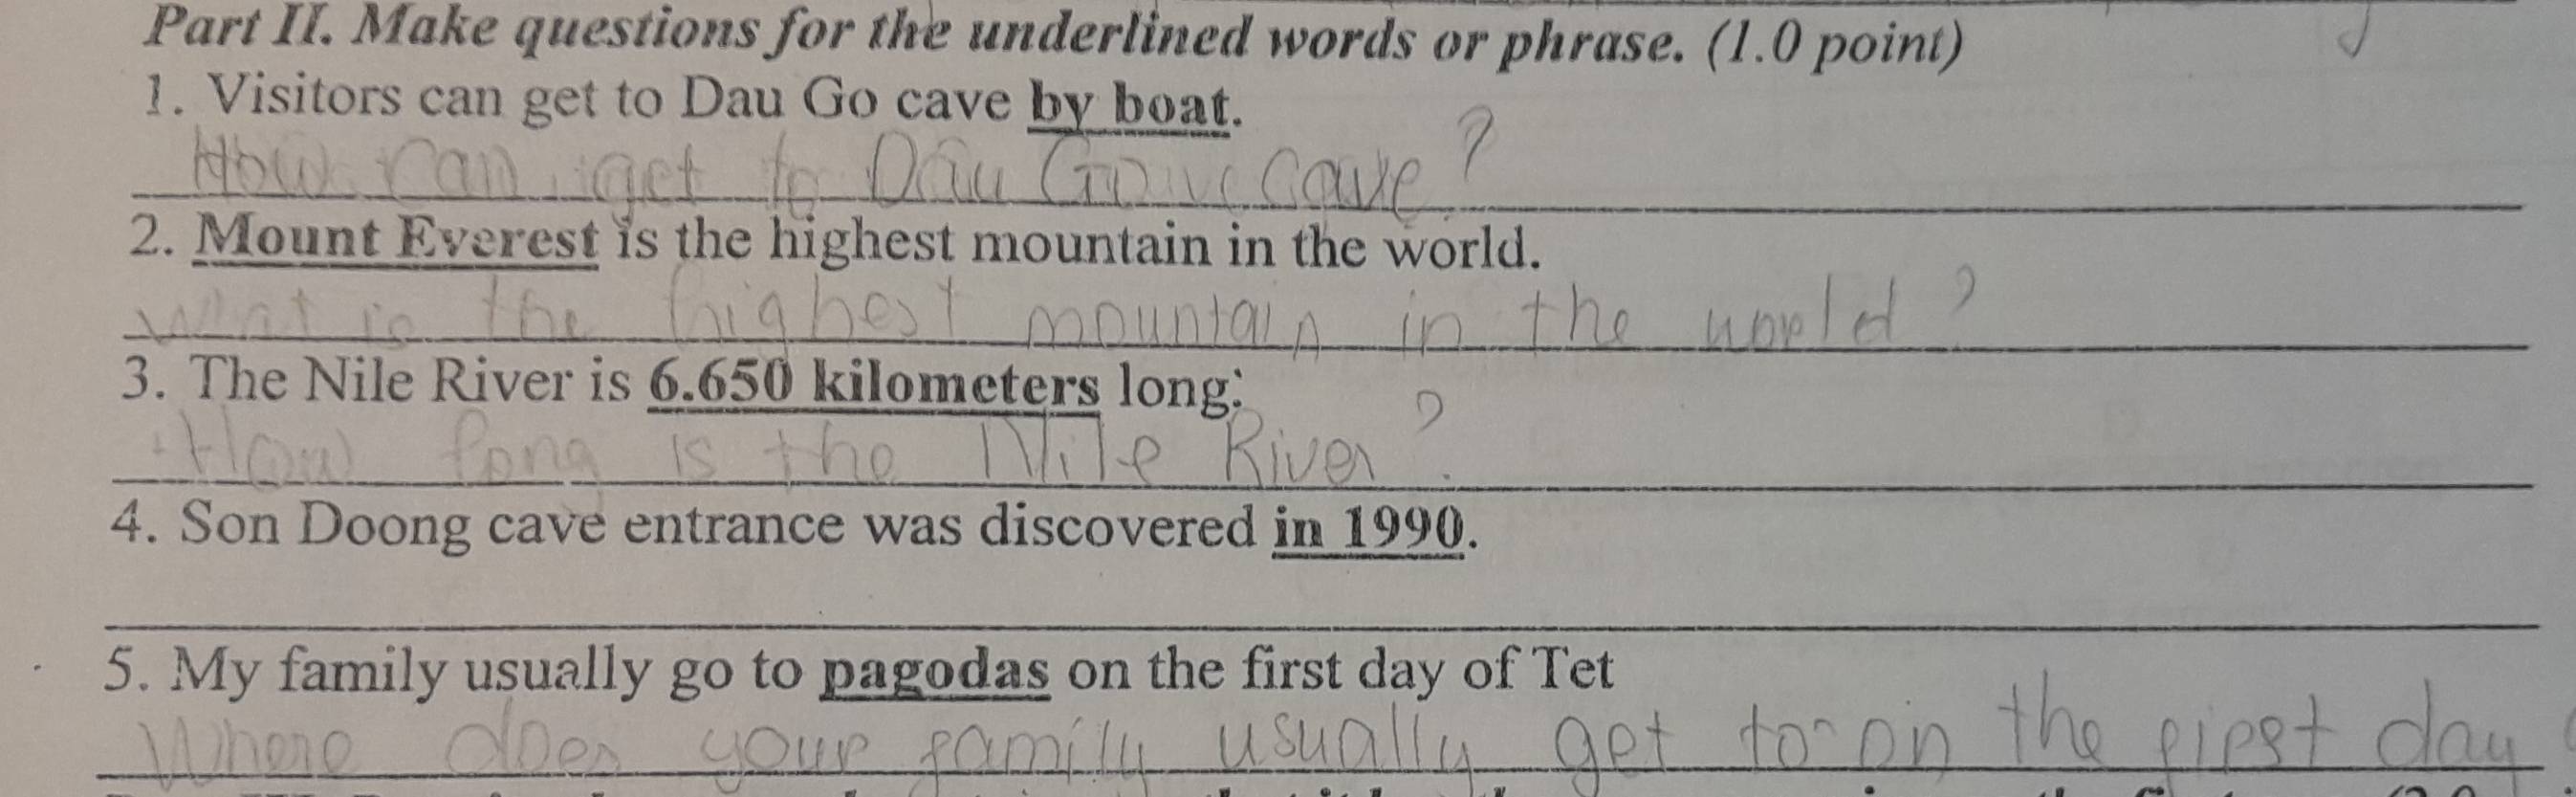 Part II. Make questions for the underlined words or phrase. (1.0 point)
1. Visitors can get to Dau Go cave by boat.
How can get to Dau Go cave?
2. Mount Everest is the highest mountain in the world.
What is the highest mountain in the world?
3. The Nile River is 6.650 kilometers long.
How long is the Nile River?
4. Son Doong cave entrance was discovered in 1990.
5. My family usually go to pagodas on the first day of Tet
Where does your family usually get to on the first day